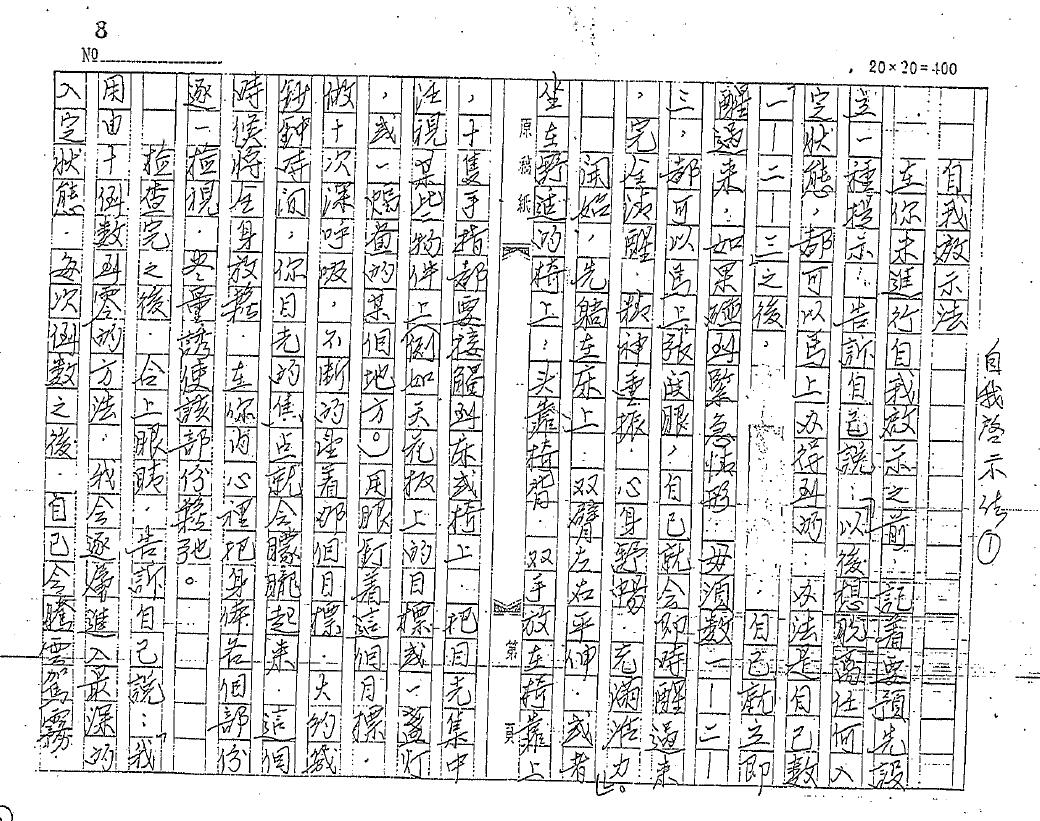 8
№
20×20=400
自我啓示法①
自我啟示法
在你未進行自我啟示之前．記着要預先設
立一種提示：告訴自己說：「以後想脫离任何入
定狀態，都可以馬上办得到的．办法是自己數
一—二—三之後．自己就立即
醒過來．如果碰到緊急情形．毋須數一—二—
三，都可以馬上張開眼，自己就会即時醒過來
，完全清醒．精神重振．心身舒暢．充滿活力」。
開始，先躺在床上．双臂左右平伸．或者
坐在舒适的椅上．头靠椅背．双手放在椅靠上
原稿紙
第
頁
，十隻手指都要接觸到床或椅上．把目光集中
注視一某此物件上（例如天花板上的目標或一盞灯
，或一幅畫的某個地方。）用眼盯着這個目標．
做十次深呼吸．不断的望着那個目標．大約幾
分鐘時间，你目光的焦点就会朦朧起來．這個
時候將全身放鬆．在你内心裡把身体各個部份
逐一檢視．尽量誘使該部份鬆弛。
檢查完之後．合上眼睛．告訴自己說：「我
用由十倒數到零的方法．我会逐漸進入最深的
入定狀態．每次倒數之後．自己会騰雲駕霧